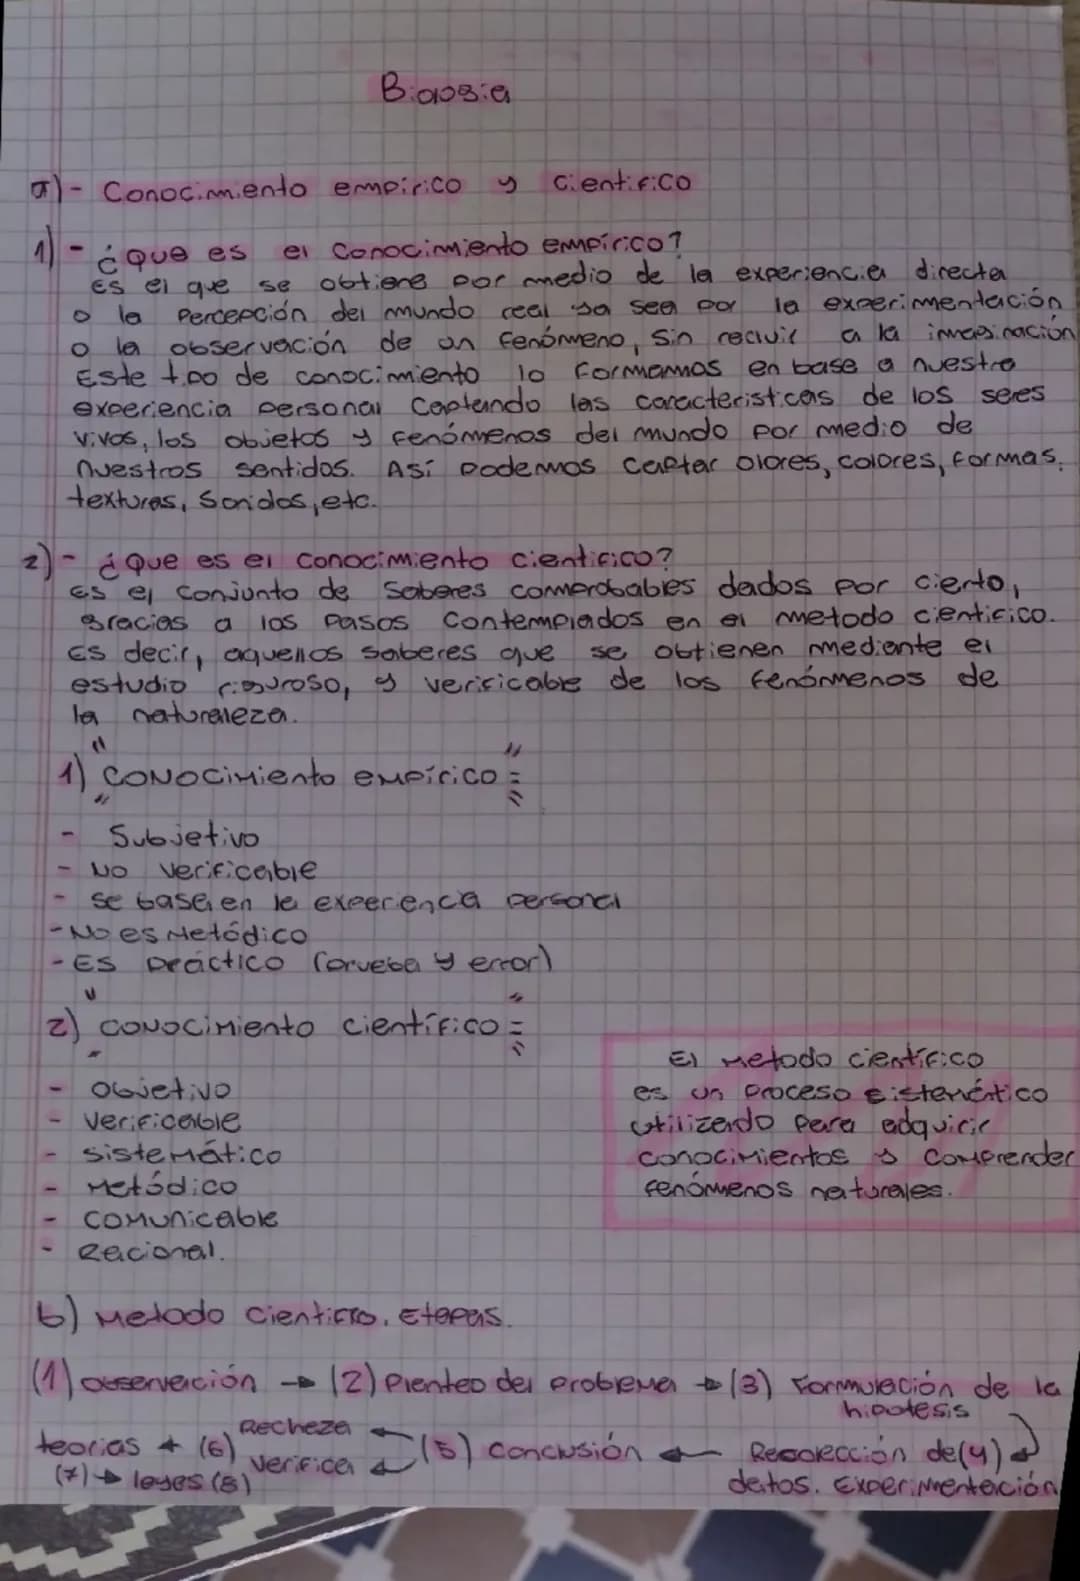 Biología
a)- Conocimiento empírico y cientifico
1)- ¿Que es el conocimiento empírico?
Es el que se obtiene por medio de la experiencia directa
o la percepción del mundo real ya sea por la experimentación
o la observación de un fenómeno, sin recivir a la imaginación
Este tipo de conocimiento lo formamos en base a nuestra
experiencia personal captando las caracteristicas de los seres
vivos, los objetos y fenómenos del mundo por medio de
nuestros sentidos. Así podemos captar olores, colores, formas,
texturas, sonidos, etc.
2)- ¿Que es el conocimiento cientifico?
Es el conjunto de saberes comprobables dados por cierto,
gracias a los pasos contemplados en el metodo cientifico.
Es decir, aquellos saberes que se obtienen mediante el
estudio riguroso, y verificable de los fenómenos de
la naturaleza.
1) "CONOCIMIENTO EMPÍRICO":
- Subjetivo
- No verificable
- Se basa en la experiencia personal
- No es Metódico
- Es práctico (prueba y error)
2) "CONOCIMIENTO científico":
- Objetivo
- Verificable
- Sistemático
- Metódico
- Comunicable
- Racional.
El Metodo científico
es un proceso sistemático
utilizando para adquirir
conocimientos y comprender
fenómenos naturales.
b) Metodo cientifico. Etapas.
(1) Observación → (2) Planteo del problema → (3) Formulación de la
hipotesis
Rechaza
teorias ← (6) verifica ← (5) conclusión ← Recolección de (4)
(7) → leyes (8) datos. Experimentación